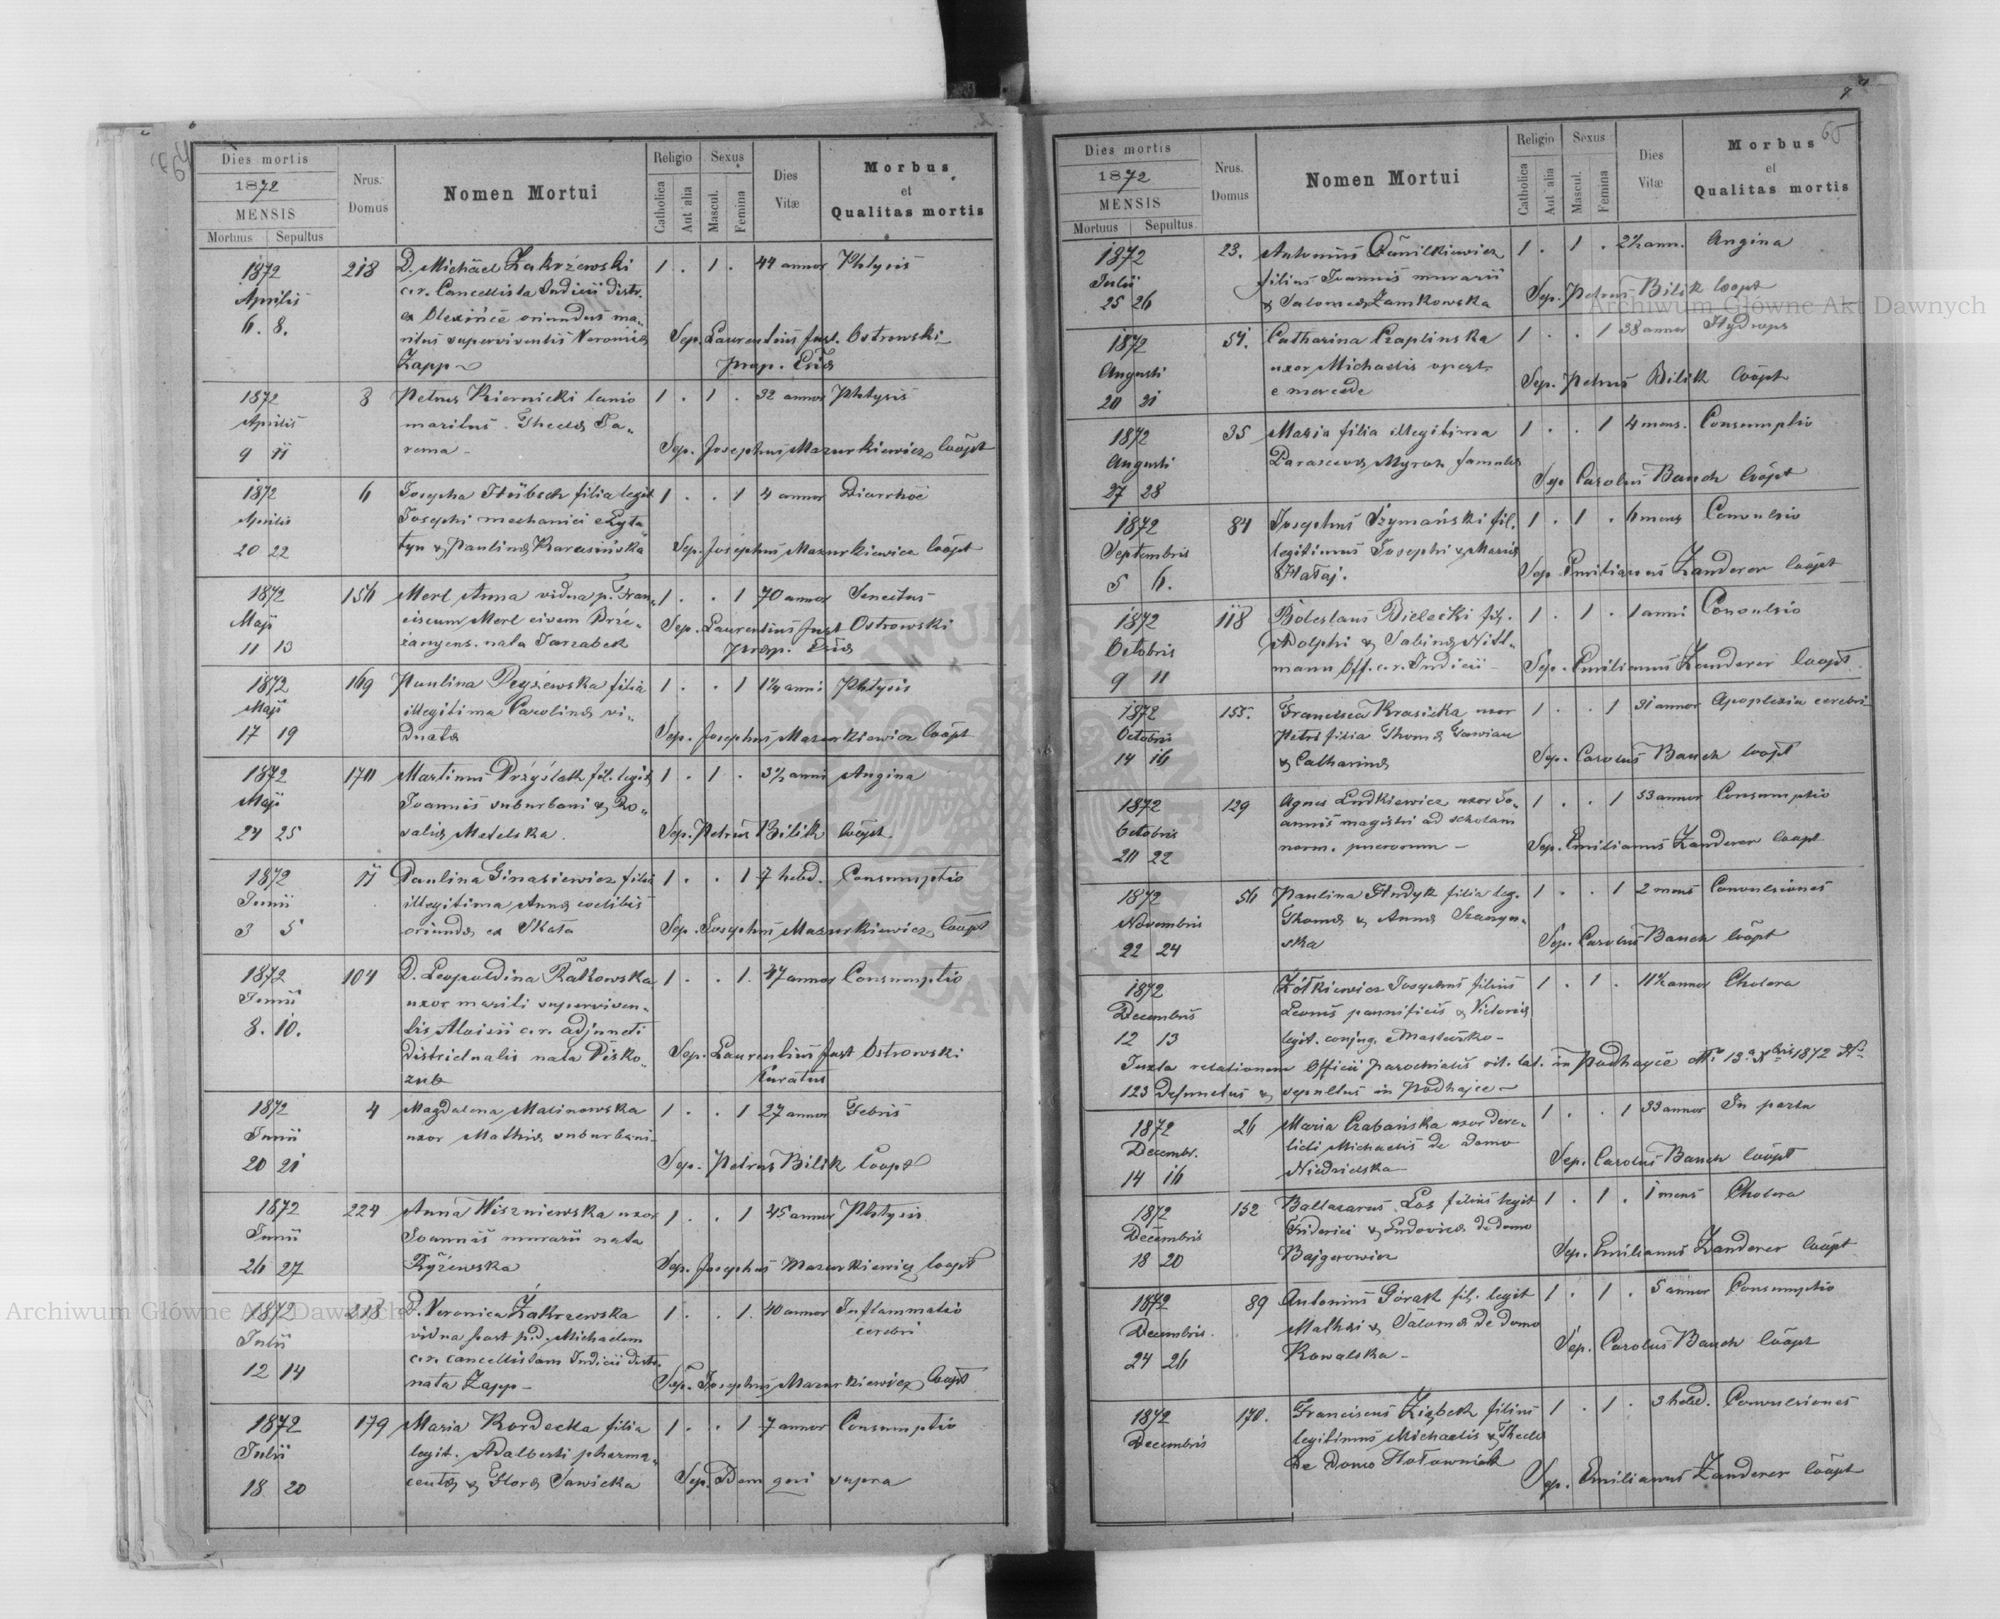 Dies mortis
1872
MENSIS
Mortuus Sepultus
Nrus. Domus
Nomen Mortui
Religio
Catholica
Aut alia
Sexus
Mascul.
Femina
Dies Vitæ
Morbus
et
Qualitas mortis
1872 218 D. Michäel Zakrzewski 1 . 1 . 44 annor Phtysis
Aprilis c.r. Cancellista Judicii distr.
6. 8. oriundus ma-
ritus superviventis Veronicæ Sep. Laurentius Just. Ostrowski
Zapp prap. Exp.
1872 8 Petrus Kiernicki lanio 1 . 1 . 32 annor Phtysis
Aprilis maritus Theclæ Ja-
9 11 rema Sep. Josephus Mazurkiewicz Coöpt
1872 6 Josepha Hübsch filia legit 1 . . 1 4 annor Diarrhöe
Aprilis Josephi mechanici
20 22 & Paulinæ Sep. Josephus Mazurkiewicz Coöpt
1872 156 Merl Anna vidua p. Fran- 1 . . 1 70 annor Senectus
Maji ciscum Merl civem Brze- Sep. Laurentius Just Ostrowski
11 13 żanyens. nata Jarzabek
1872 169 Paulina filia 1 . . 1 1¼ anni Phtysis
Maji illegitima Carolinæ vi-
17 19 duatæ Sep. Josephus Mazurkiewicz Coöpt
1872 170 Martinus Przyślak fil. legit. 1 . 1 . 3½ anni Angina
Maji Joannis suburbani & Ro-
24 25 saliæ Metelska. Sep. Petrus Bilik Coöpt
1872 11 Paulina Ginasiewicz filia 1 . . 1 7 hebd. Consumptio
Junii illegitima Annæ coelibis
3 5 oriundæ ex Skała Sep. Josephus Mazurkiewicz Coöpt
1872 104 D. Leopoldina Rätkowska 1 . . 1. 47 annor Consumptio
Junii uxor mariti superviven-
8. 10. tis Aloisii c.r. adjuncti
districtualis nata Pisko- Sep. Laurentius Just Ostrowski
zub Curatus
1872 4 Magdalena Malinowska 1 . . 1 27 annor Febris
Junii uxor Mathiæ suburbani
20 21 Sep. Petrus Bilik Coöpt
1872 224 Anna Wiszniewska uxor 1 . . 1 45 annor Phtysis
Junii Joannis murarii nata
26 27 Ryżewska Sep. Josephus Mazurkiewicz Coopt
1872 218 D. Veronica Zakrzewska 1 . . 1. 40 annor Inflammatio
Julii vidua post p.d. Michaelem cerebri
12 14 c.r. cancellistam Judicii distr.
nata Zapp Sep. Josephus Mazurkiewicz Coöpt
1872 179 Maria Kordecka filia 1 . . 1 7 annor Consumptio
Julii legit. Adalberti pharma-
18 20 ceutæ & Floræ Sawicka Sep. Idem qui supra
65
Dies mortis
1872
MENSIS
Mortuus Sepultus
Nrus. Domus
Nomen Mortui
Religio
Catholica
Aut alia
Sexus
Mascul.
Femina
Dies Vitæ
Morbus
et
Qualitas mortis
1872 23. Antonius Danilkiewicz 1 . 1 . 2½ ann. Angina
Julii filius Joannis murarii
25 26 & Salomeæ Zamkowska Sep. Petrus Bilik Coopt
1872 Catharina Czaplinska 1 . . 1 38 annor Hydrops
Augusti uxor Michaelis
20 21 e mercede Sep. Petrus Bilik Coöpt
1872 35 Maria filia illegitima 1 . . 1 4 mens. Consumptio
Augusti Parascevæ Myroz famulæ
27 28 Sep Carolus Bauch Coöpt
1872 84 Josephus Szymański fil. 1 . 1 . 6 mens Convulsio
Septembris legitimus Josephi & Mariæ
5 6. Hałaj. Sep. Emilianus Zanderer Coöpt
1872 118 Boleslaus Bielecki fil. 1 . 1 . 1 anni Convulsio
Octobris Adolphi & Sabinæ Nitt-
9 11 mann Off. c.r. Judicii Sep. Emilianus Zanderer Coopt.
1872 155. Francisca Krasicka uxor 1 . . 1 31 annor Apoplexia cerebri
Octobris Petri filia Thomæ
14 16 & Catharinæ Sep. Carolus Bauch Coopt
1872 129 Agnes Ludkiewicz uxor Jo- 1 . . 1 53 annor Consumptio
Octobris annis magistri ad scholam
20 22 norm. puerorum Sep. Emilianus Zanderer Coopt
1872 56 Paulina Hudyk filia leg. 1 . . 1 2 mens Convulsiones
Novembris Thomæ & Annæ
22 24 ska Sep. Carolus Bauch Coöpt
1872 Żółkiewicz Josephus filius 1 . 1 . 11½ annor Cholera
Decembris Leonis pannificis & Victoriæ
12 13 legit. conjug.
Juxta relationem Officii parochialis rit. lat. in Podhayce 13 Xbris 1872 No
123 defunctus & sepultus in Podhajce
1872 26 Maria Czabańska uxor dere- 1 . . 1 33 annor In partu
Decembr. licti Michaelis de domo
14 16 Niedzielska Sep. Carolus Bauch Coöpt
1872 152 Baltazarus Los filius legit 1 . 1 . 1 mens Cholera
Decembris Friderici & Ludovicæ de domo
18 20 Bajgerowicz Sep. Emilianus Zanderer Coöpt
1872 89 Antonius Górak fil. legit 1 . 1 . 5 annor Consumptio
Decembris. Mathæi & Salomeæ de domo
24 26 Kowalska Sep. Carolus Bauch Coöpt
1872 170. Franciscus Ziębek filius 1 . 1 . 3 hebd. Convulsiones
Decembris legitimus Michaelis & Theclæ
de domo Hołowniak Sep. Emilianus Zanderer Coöpt
Archiwum Główne Akt Dawnych
Archiwum Główne Akt Dawnych
ARCHIWUM GŁÓWNE AKT DAWNYCH